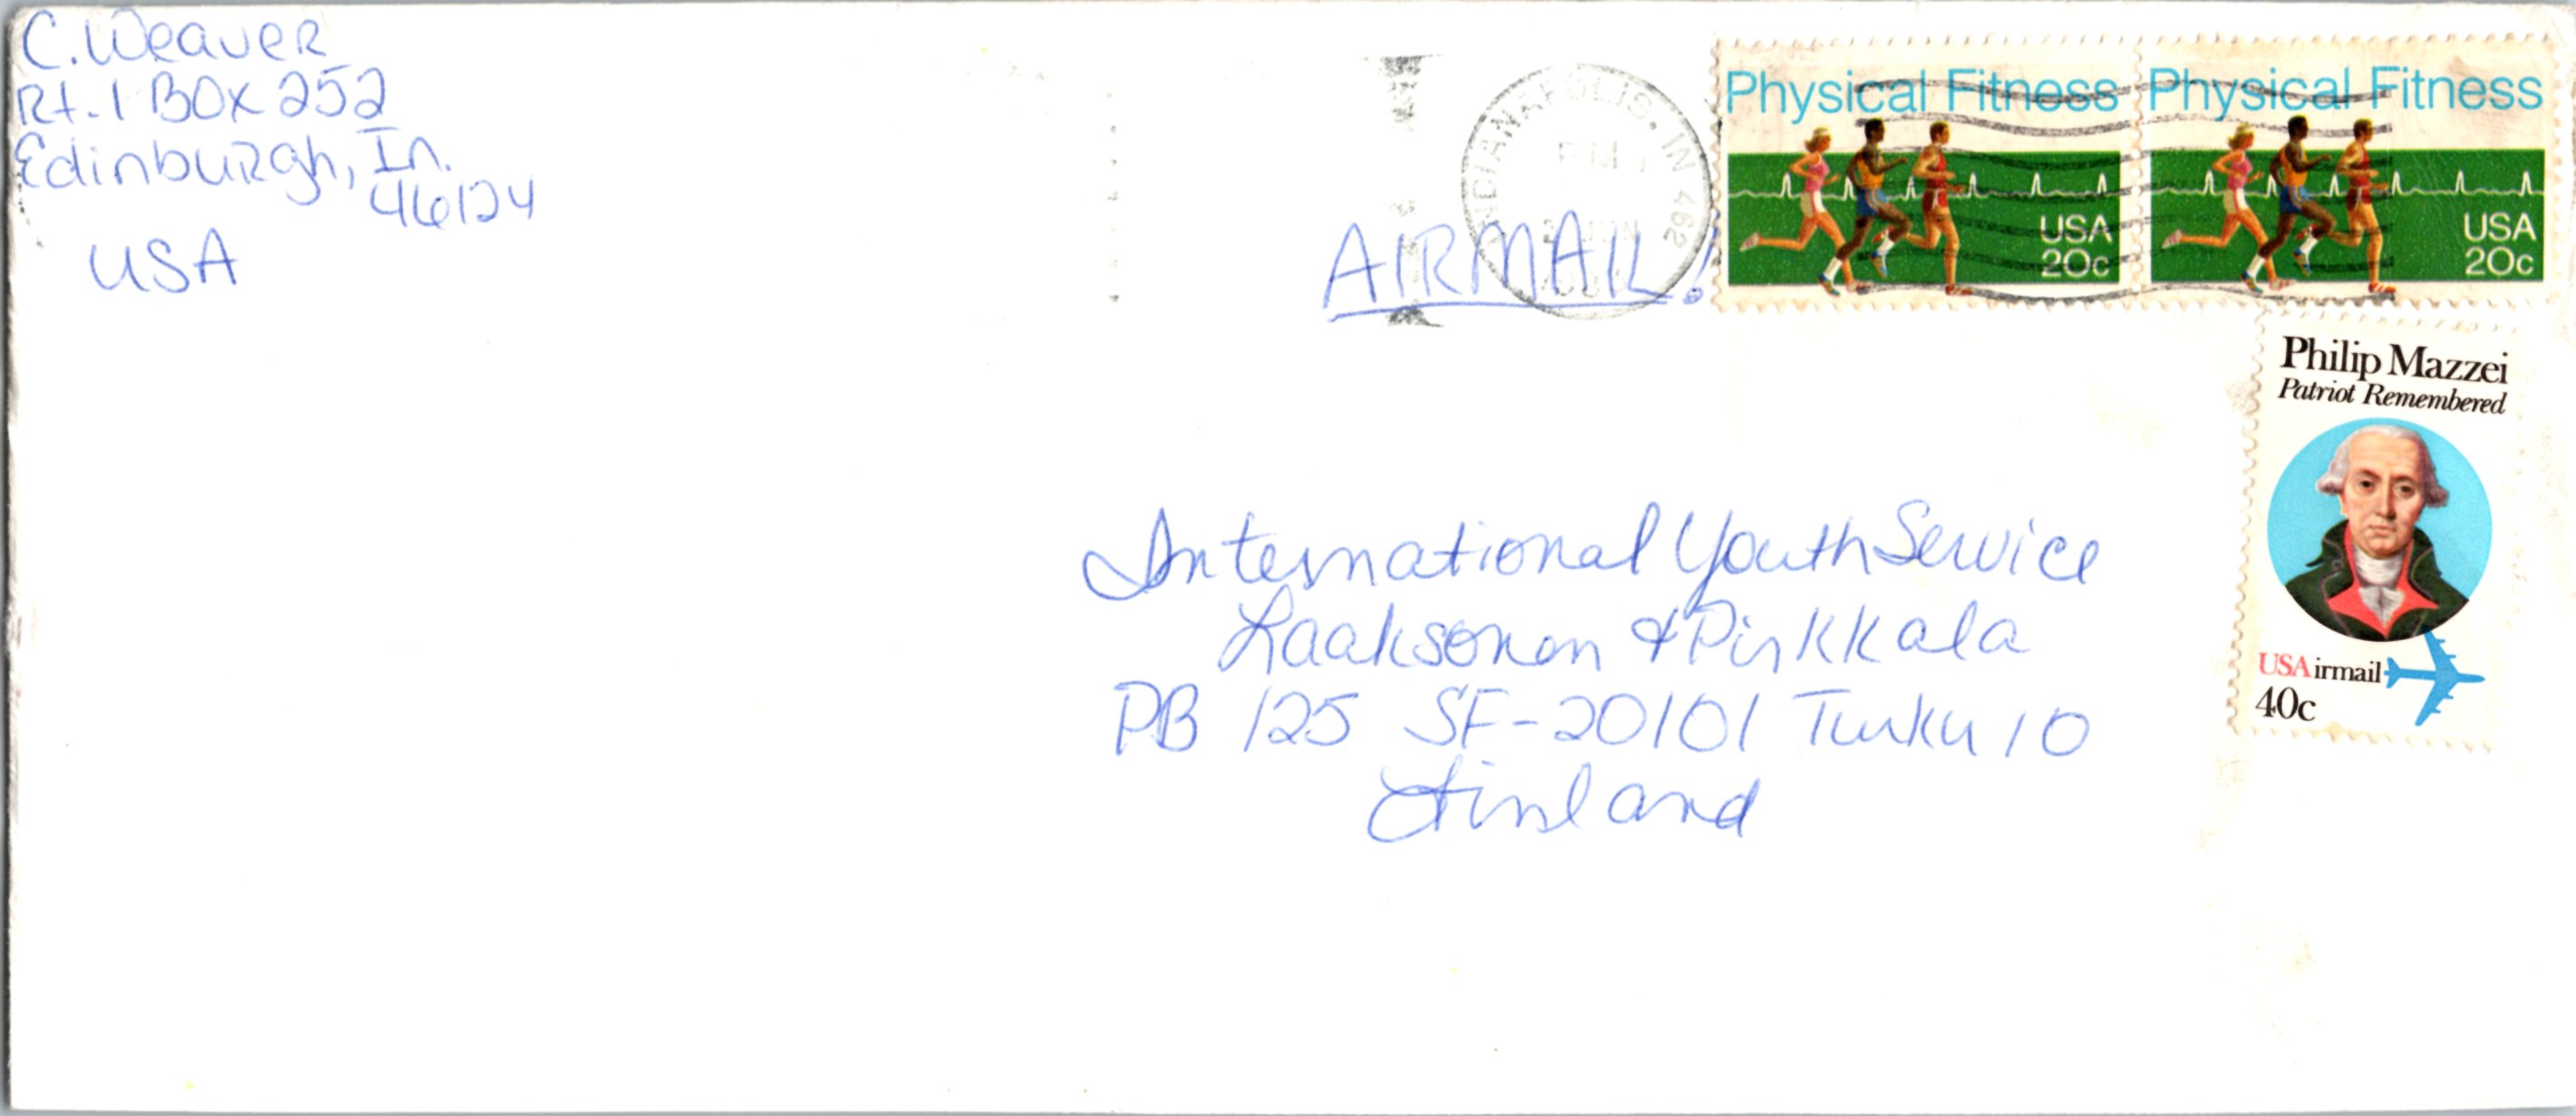 C. Weaver
Rt. 1 Box 252
Edinburgh, In.
46124
USA
AIRMAIL!
INDIANAPOLIS, IN 462
PM
JUN
Physical Fitness
USA
20c
Physical Fitness
USA
20c
Philip Mazzei
Patriot Remembered
USAirmail
40c
International Youth Service
Laaksonen & Pirkkala
PB 125 SF-20101 Turku 10
Finland